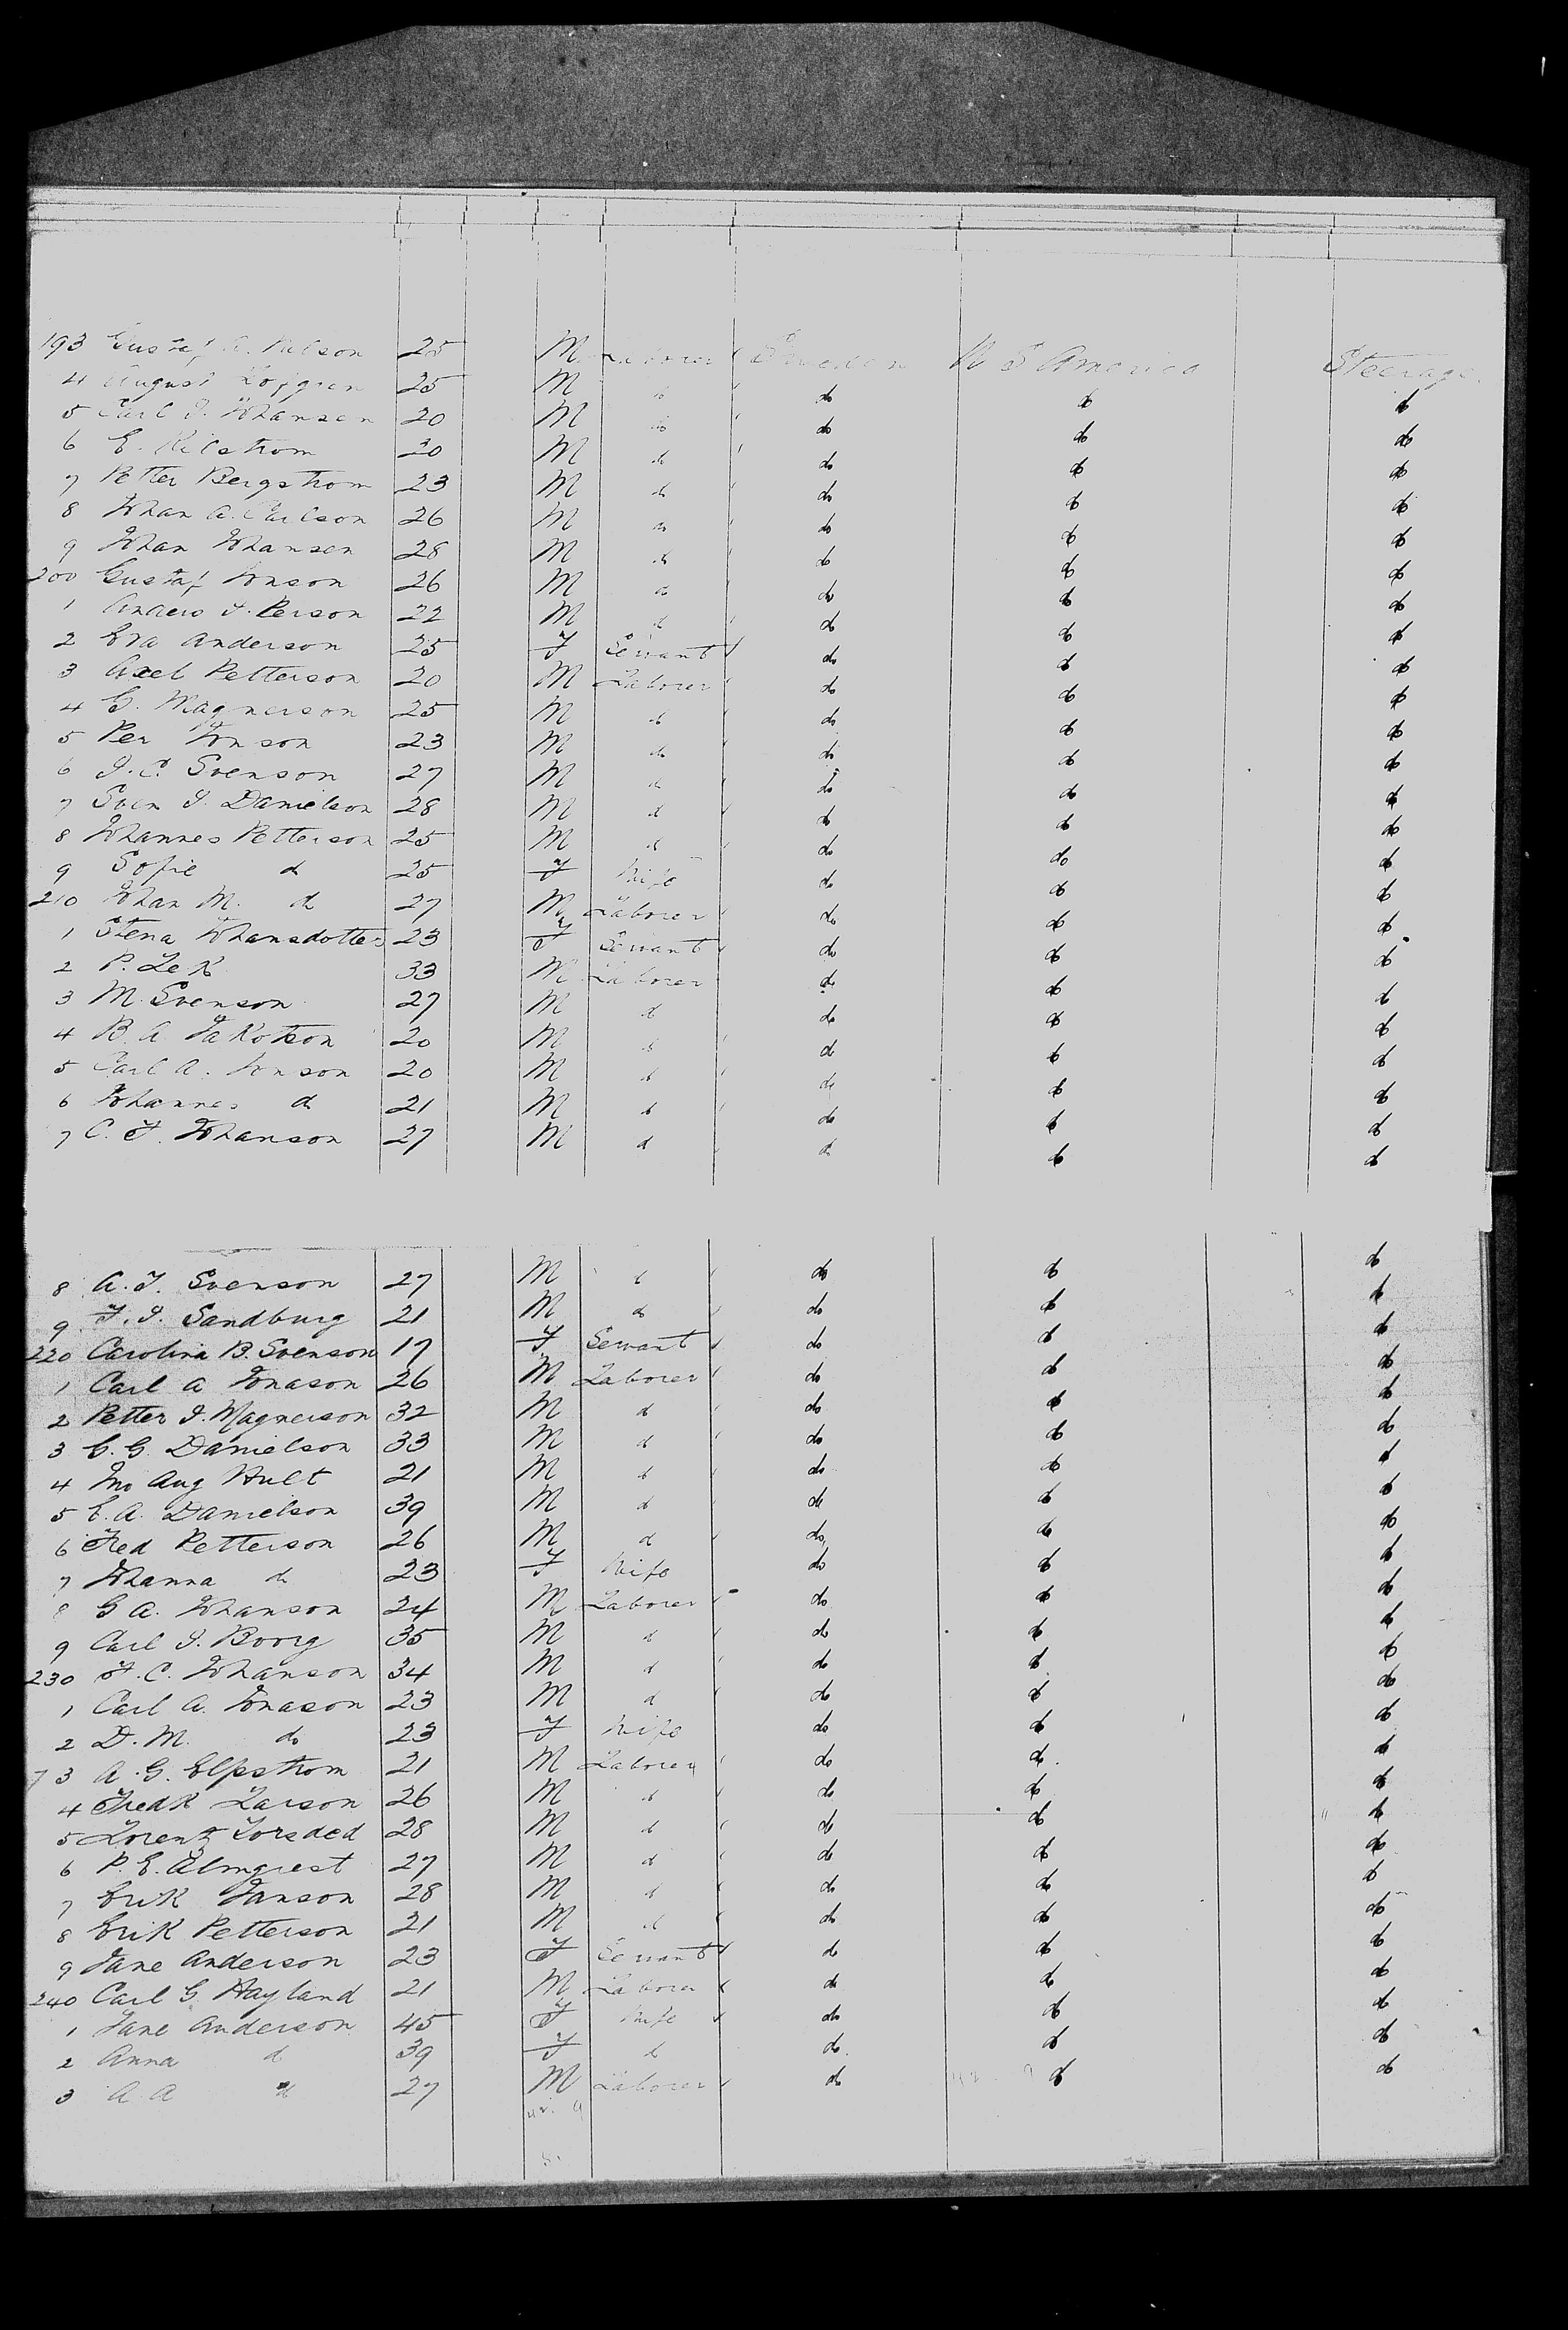 193 Gustaf A. Nilson 25 M Laborer Sweden U S America Steerage
4 August Lofgren 25 M do do do do
5 Carl J. Johansen 20 M do do do do
6 E. Kilstrom 20 M do do do do
7 Petter Bergstrom 23 M do do do do
8 Johan A. Carlson 26 M do do do do
9 Johan Johansen 28 M do do do do
200 Gustaf Jonson 26 M do do do do
1 Anders J. Person 22 M do do do do
2 Eva Anderson 25 F Servant do do do
3 Axel Petterson 20 M Laborer do do do
4 G. Magnerson 25 M do do do do
5 Per Jonson 23 M do do do do
6 J. C. Svenson 27 M do do do do
7 Sven J. Danielson 28 M do do do do
8 Johannes Petterson 25 M do do do do
9 Sofie do 25 F Wife do do do
210 Johan M. do 27 M Laborer do do do
1 Stena Johansdotter 23 F Servant do do do
2 P. Lek 33 M Laborer do do do
3 M. Svenson 27 M do do do do
4 B. A. 20 M do do do do
5 Carl A. Jonson 20 M do do do do
6 Johannes do 21 M do do do do
7 C. F. Johanson 27 M do do do do
8 A. J. Svenson 27 M do do do do
9 F. J. Sandburg 21 M do do do do
220 Carolina B. Svenson 17 F Servant do do do
1 Carl A Jonason 26 M Laborer do do do
2 Petter J. Magnerson 32 M do do do do
3 C. G. Danielson 33 M do do do do
4 Jno Aug Hult 21 M do do do do
5 E. A. Danielson 39 M do do do do
6 Fred Petterson 26 M do do do do
7 Johanna do 23 F Wife do do do
8 G A. Johanson 24 M Laborer do do do
9 Carl J. Boorg 35 M do do do do
230 F. C. Johanson 34 M do do do do
1 Carl A. Jonason 23 M do do do do
2 D. M. do 23 F Wife do do do
3 A. G. Elpstrom 21 M Laborer do do do
4 Fredk Larson 26 M do do do do
5 Lorentz 28 M do do do do
6 P. E. Almgrest 27 M do do do do
7 Erik Janson 28 M do do do do
8 Erik Petterson 21 M do do do do
9 Jane Anderson 23 F Servant do do do
240 Carl G. Hayland 21 M Laborer do do do
1 Jane Anderson 45 F Wife do do do
2 Anna do 39 F do do do do
3 A A do 27 M Laborer do do do